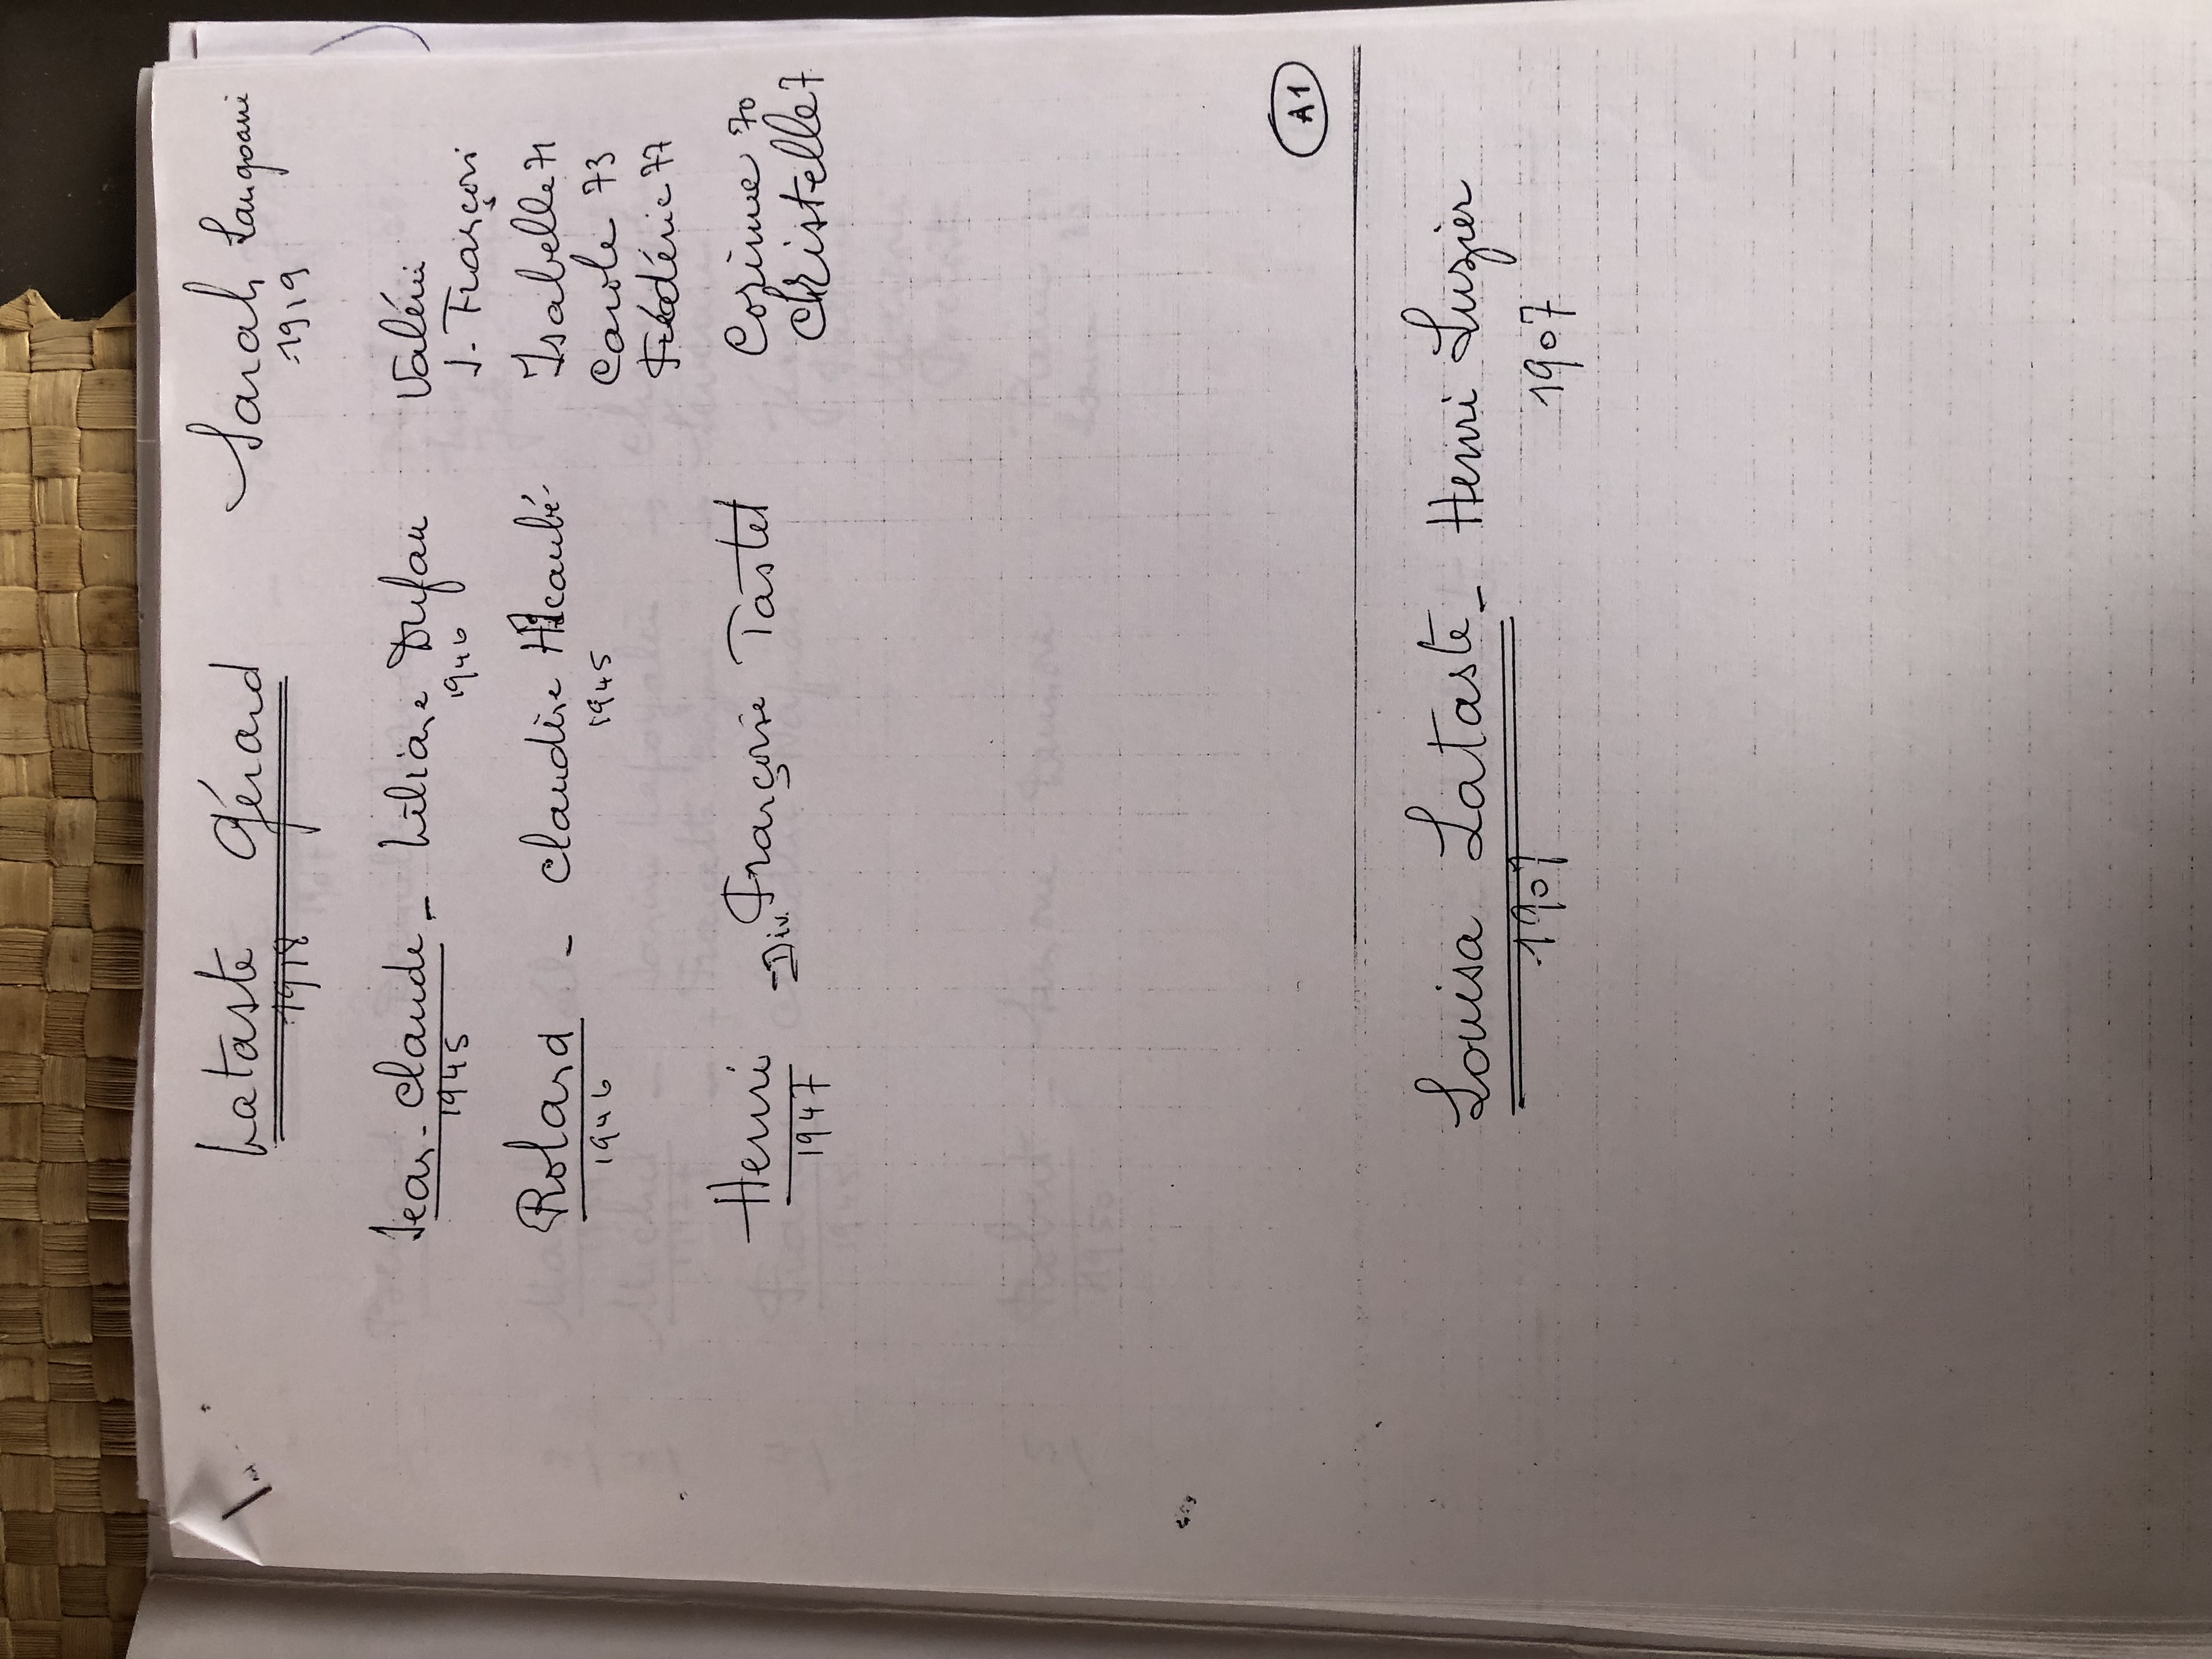 Lataste Gérard Sarah
1918 1919
Jean-Claude - Liliane Dufau Valérie
1945 1946 J. François
Roland - Claudine Isabelle 71
1946 1945 Carole 73
Frédéric 77
Henri - Div. Françoise Tastet Corinne 70
1947 Christelle 7
A1
Louisa Lataste - Henri Luzier
1909 1907